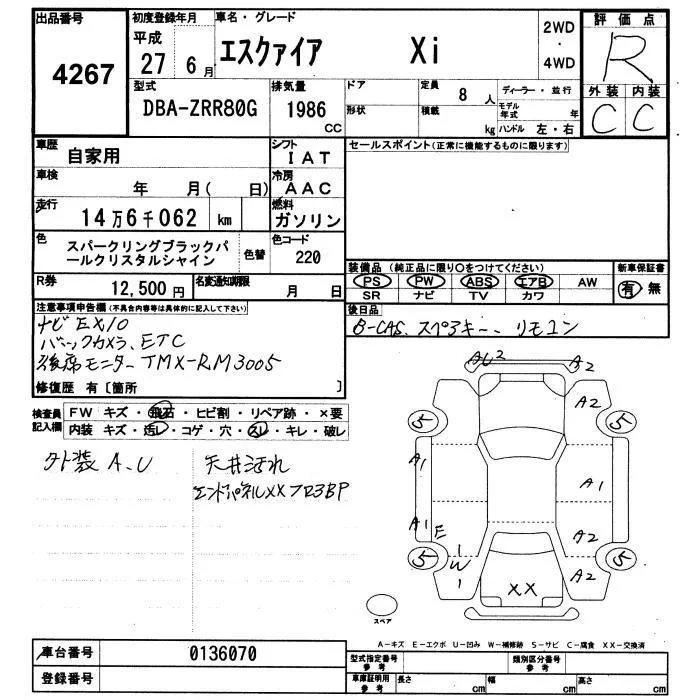 出品番号 初度登録年月 車名・グレード 2WD・4WD 評価点
4267 平成 27 6月 エスクァイア Xi R
型式 排気量 ドア 定員 8人 ディーラー・並行 外装 内装
DBA-ZRR80G 1986 CC 形状 積載 kg モデル年式 年 ハンドル 左・右 C C
車歴 自家用 シフト IAT セールスポイント(正常に機能するものに限ります)
車検 年 月( 日) 冷房 AAC
走行 14万6千062 km 燃料 ガソリン
色 スパークリングブラックパ
ールクリスタルシャイン 色替 色コード 220
装備品 (純正品に限り○をつけてください) 新車保証書
PS PW ABS エアB AW 有 無
SR ナビ TV カワ
R券 12,500円 名変通知期限 月 日
後日品
B-CAS、スペアキー、リモコン
注意事項申告欄(不具合内容等は具体的に記入して下さい)
ナビ EX10
バックカメラ、ETC
後席モニター TMX-RM3005
修復歴 有〔箇所 〕
検査員記入欄 FW キズ・飛石・ヒビ割・リペア跡・×要
内装 キズ・汚レ・コゲ・穴・スレ・キレ・破レ
外装 A、U 天井汚れ
エンドパネルXXフロ3BP
AU2 A2
A2
5 5
A1 A1
A1 E A2
5 W A2 5
XX
スペア
A-キズ E-エクボ U-凹み W-補修跡 S-サビ C-腐食 XX-交換済
車台番号 0136070 型式指定番号 参考 類別区分番号 参考
登録番号 車庫証明用 参考 長さ cm 幅 cm 高さ cm